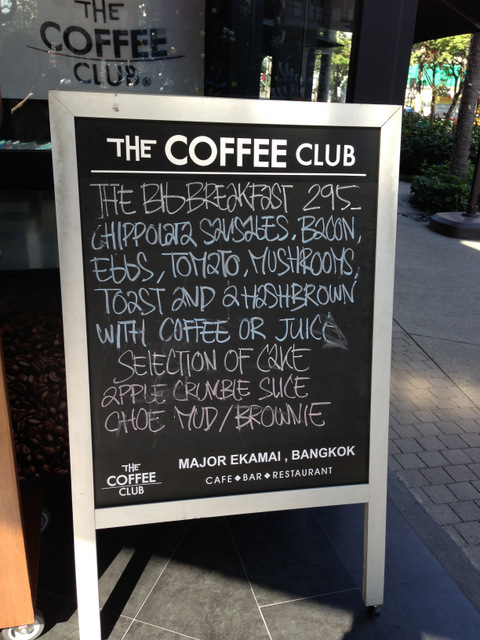 THE
COFFEE
CLUB®
THE COFFEE CLUB
THE BIG BREAKFAST 295_
CHIPPOLATA SAUSAGES, BACON,
EGGS, TOMATO, MUSHROOMS,
TOAST AND A HASHBROWN
WITH COFFEE OR JUICE
SELECTION OF CAKE
APPLE CRUMBLE SLICE
CHOE MUD/BROWNIE
THE
COFFEE
CLUB
MAJOR EKAMAI, BANGKOK
CAFE◆BAR◆RESTAURANT